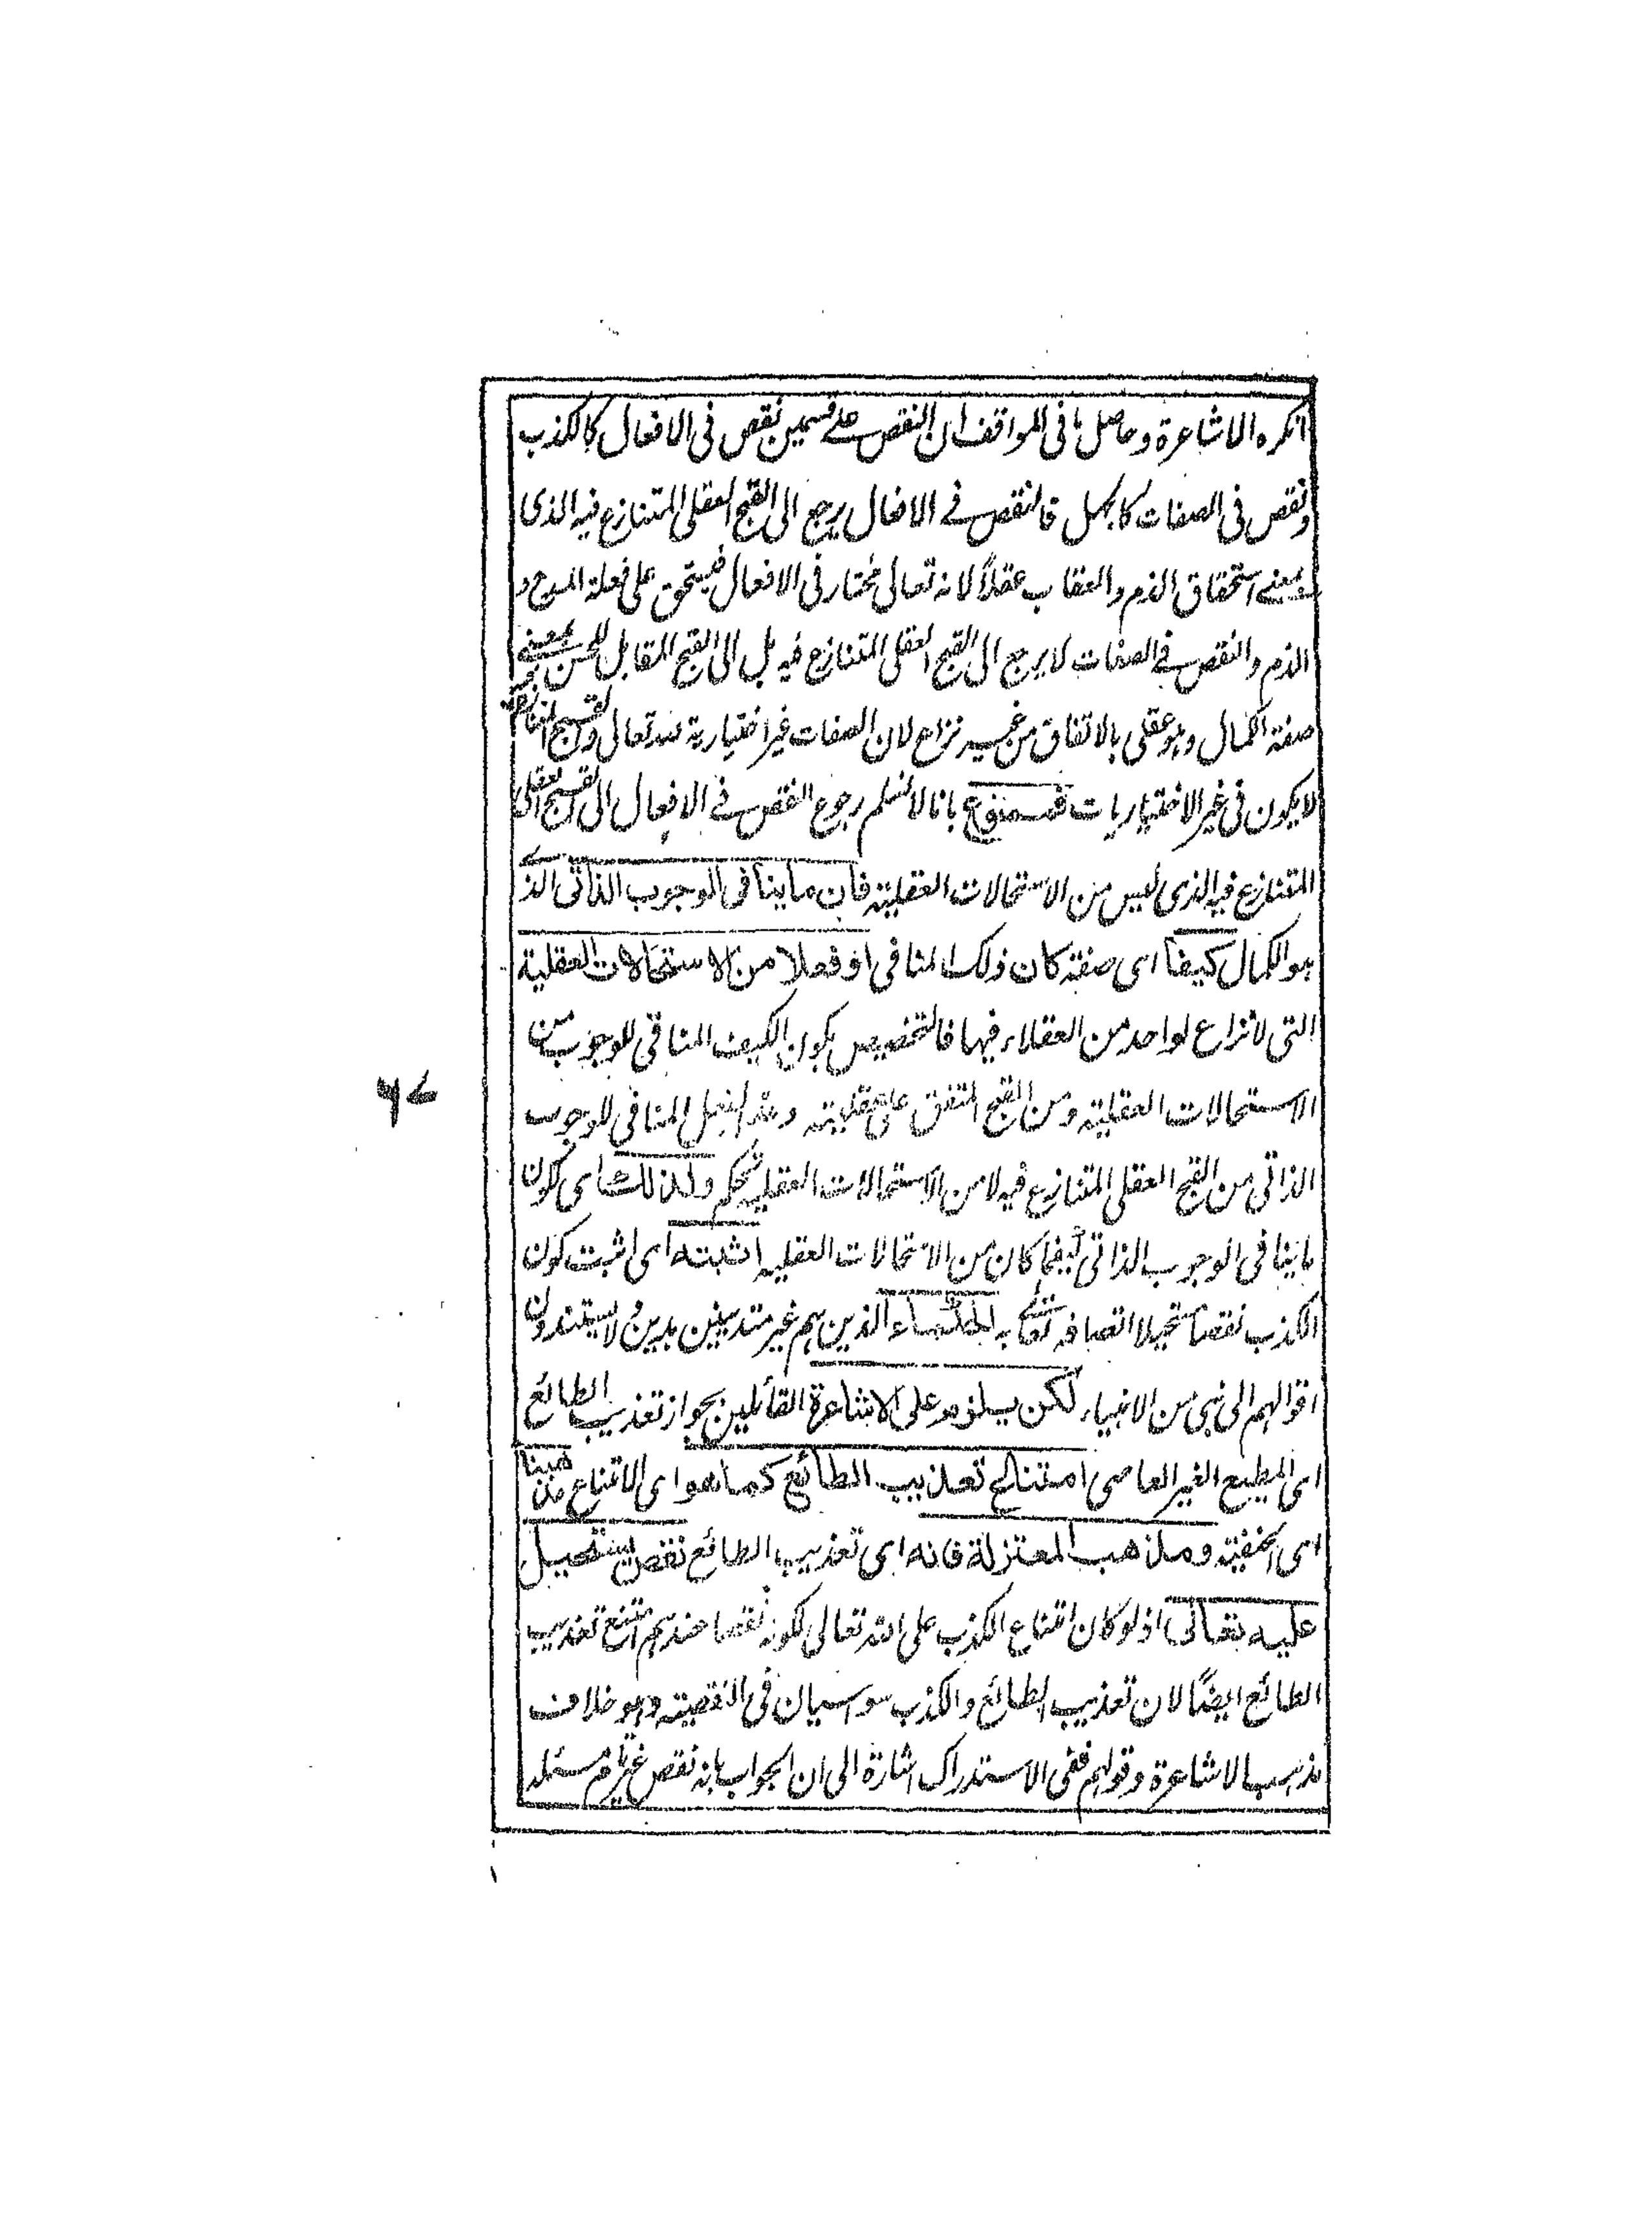 انكره الاشاعرة وحاصل ما فى المواقف ان النقص على قسمين نقص فى الافعال كالكذب
ونقص فى الصفات كالجهل فالنقص فے الافعال يرجع الى القبح العقلى المتنازع فيه الذى
بمعنے استحقاق الذم والعقاب عقلاً لانه تعالى مختار فى الافعال فيستحق على فعله المدح و
الذم والنقص فے الصفات لا يرجع الى القبح العقلى المتنازع فيه بل الى القبح المقابل للحسن بمعنے
صفة الكمال وهو عقلى بالاتفاق من غير نزاع لان الصفات غير اختيارية لله تعالى والقبح المتنازع فيه
لا يكون فى غير الاختياريات فممنوع بانا لا نسلم رجوع النقص فے الافعال الى القبح العقلى
المتنازع فيه الذى ليس من الاستحالات العقلية فان ما ينافى الوجوب الذاتى الذے
هو الكمال كيفا اى صفة كان ذلك المنافى او فعلا من الاستحالات العقلية
التى لا نزاع لواحد من العقلاء فيها فالتخصيص بكون الكيف المنافى للوجوب من
الاستحالات العقلية ومن القبح المتفق على عقليته وعد الفعل المنافى للوجوب
الذاتى من القبح العقلى المتنازع فيه لا من الاستحالات العقلية تحكم ولذلك اى كون
ما ينافى الوجوب الذاتى كيفما كان من الاستحالات العقليه اثبته اى اثبت كون
الكذب نقصا مستحيلا اتصافه تعالى به الحكماء الذين هم غير متدينين بدين ولا يستندون
اقوالهم الى نبى من الانبياء لكن يلزم على الاشاعرة القائلين بجواز تعذيب الطائع
اى المطيع الغير العاصى امتناع تعذيب الطائع كما هو اى الامتناع مذهبنا
اى الحنفية ومذهب المعتزلة فانه اى تعذيب الطائع نقص يستحيل
عليه تعالى اذ لو كان امتناع الكذب على الله تعالى لكونه نقصا عندهم امتنع تعذيب
الطائع ايضًا لان تعذيب الطائع والكذب سواسيان فى النقصية وهو خلاف
مذهب الاشاعرة وقولهم ففى الاستدراك اشارة الى ان الجواب بانه نقص غير تام مسئلة
۶۷